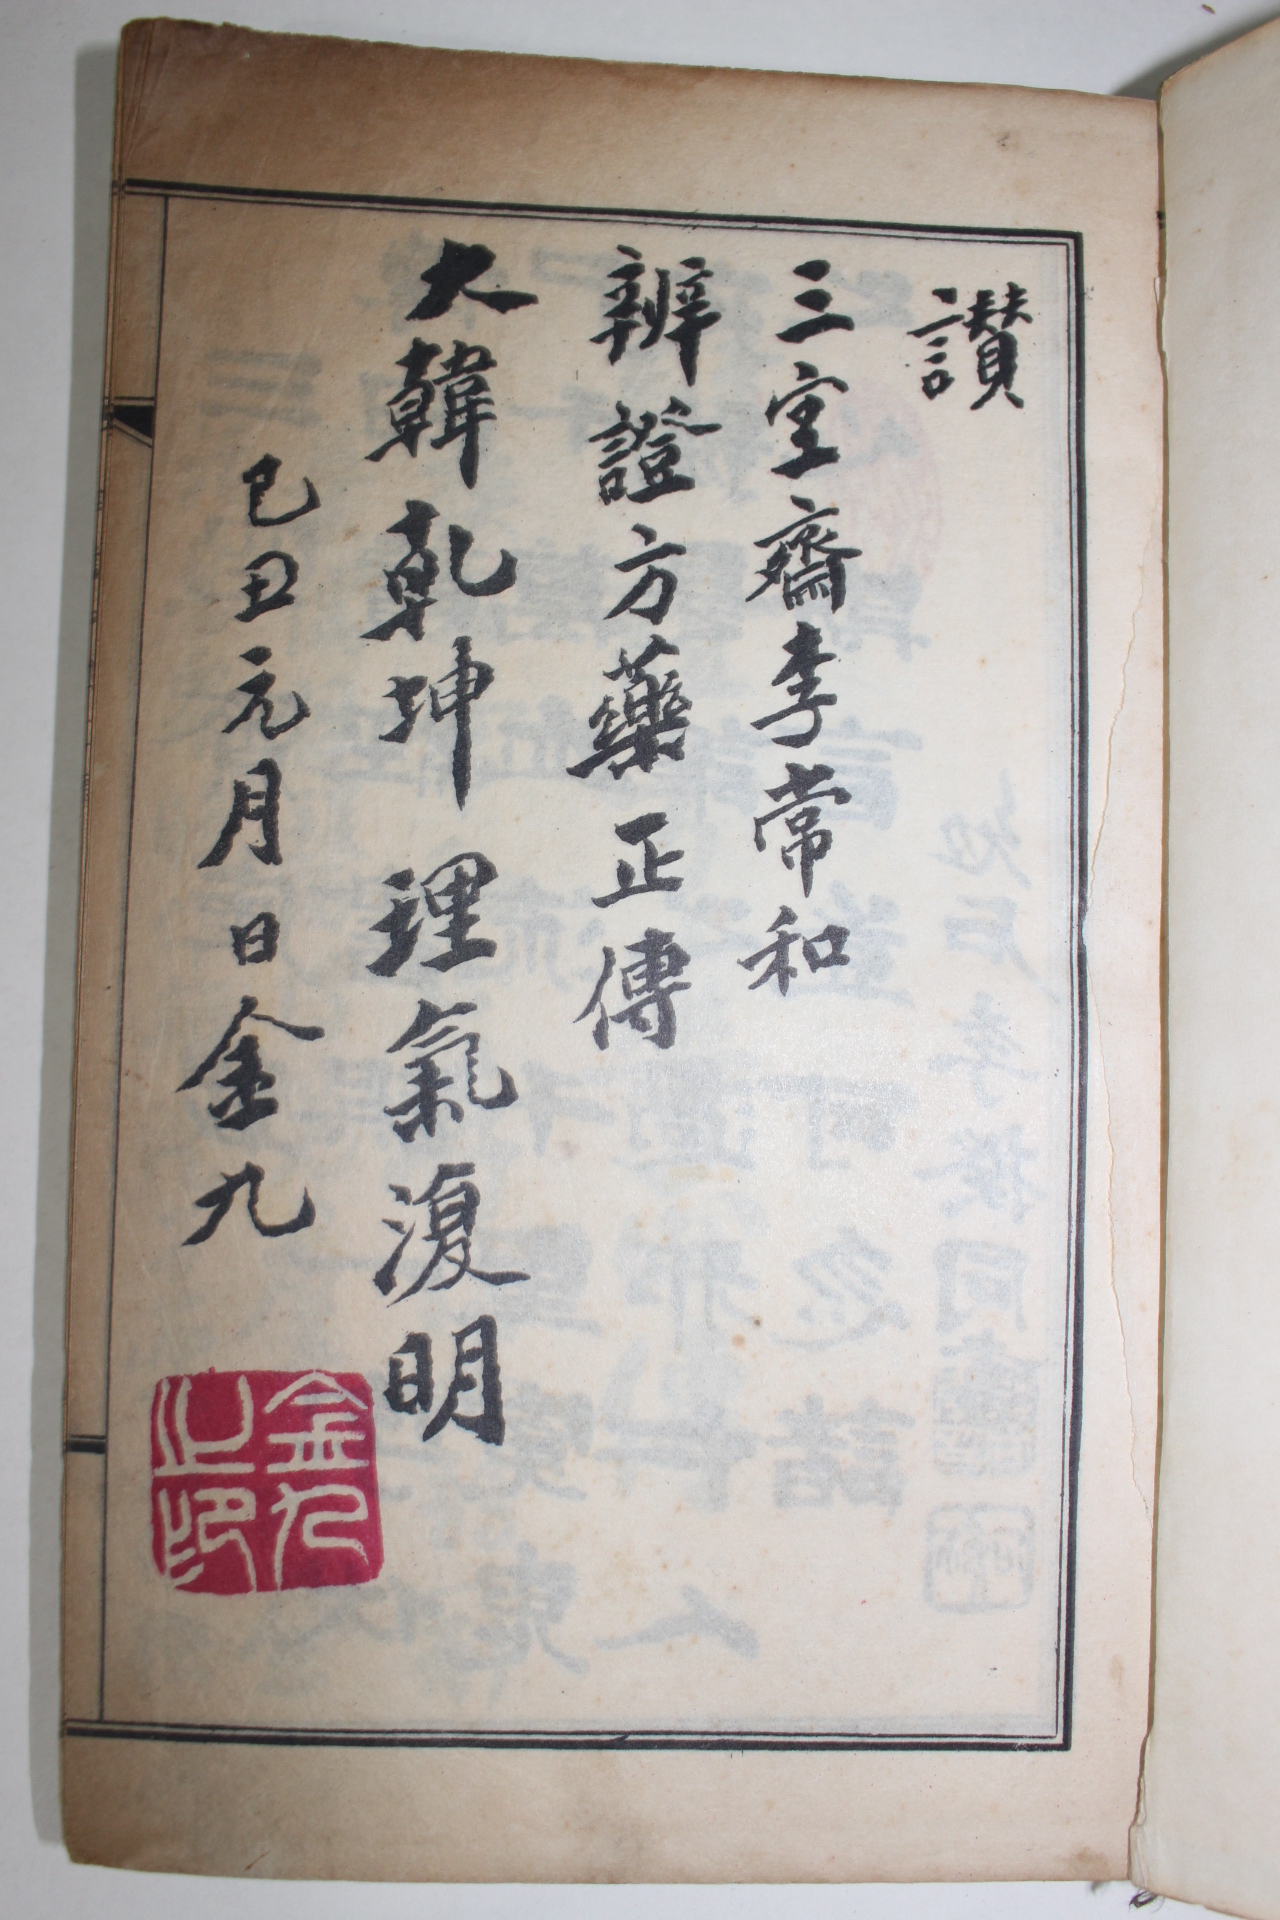 讃
三室齋李常和
辨證方藥正傳
大韓乾坤理氣復明
己丑元月日金九
金九之印